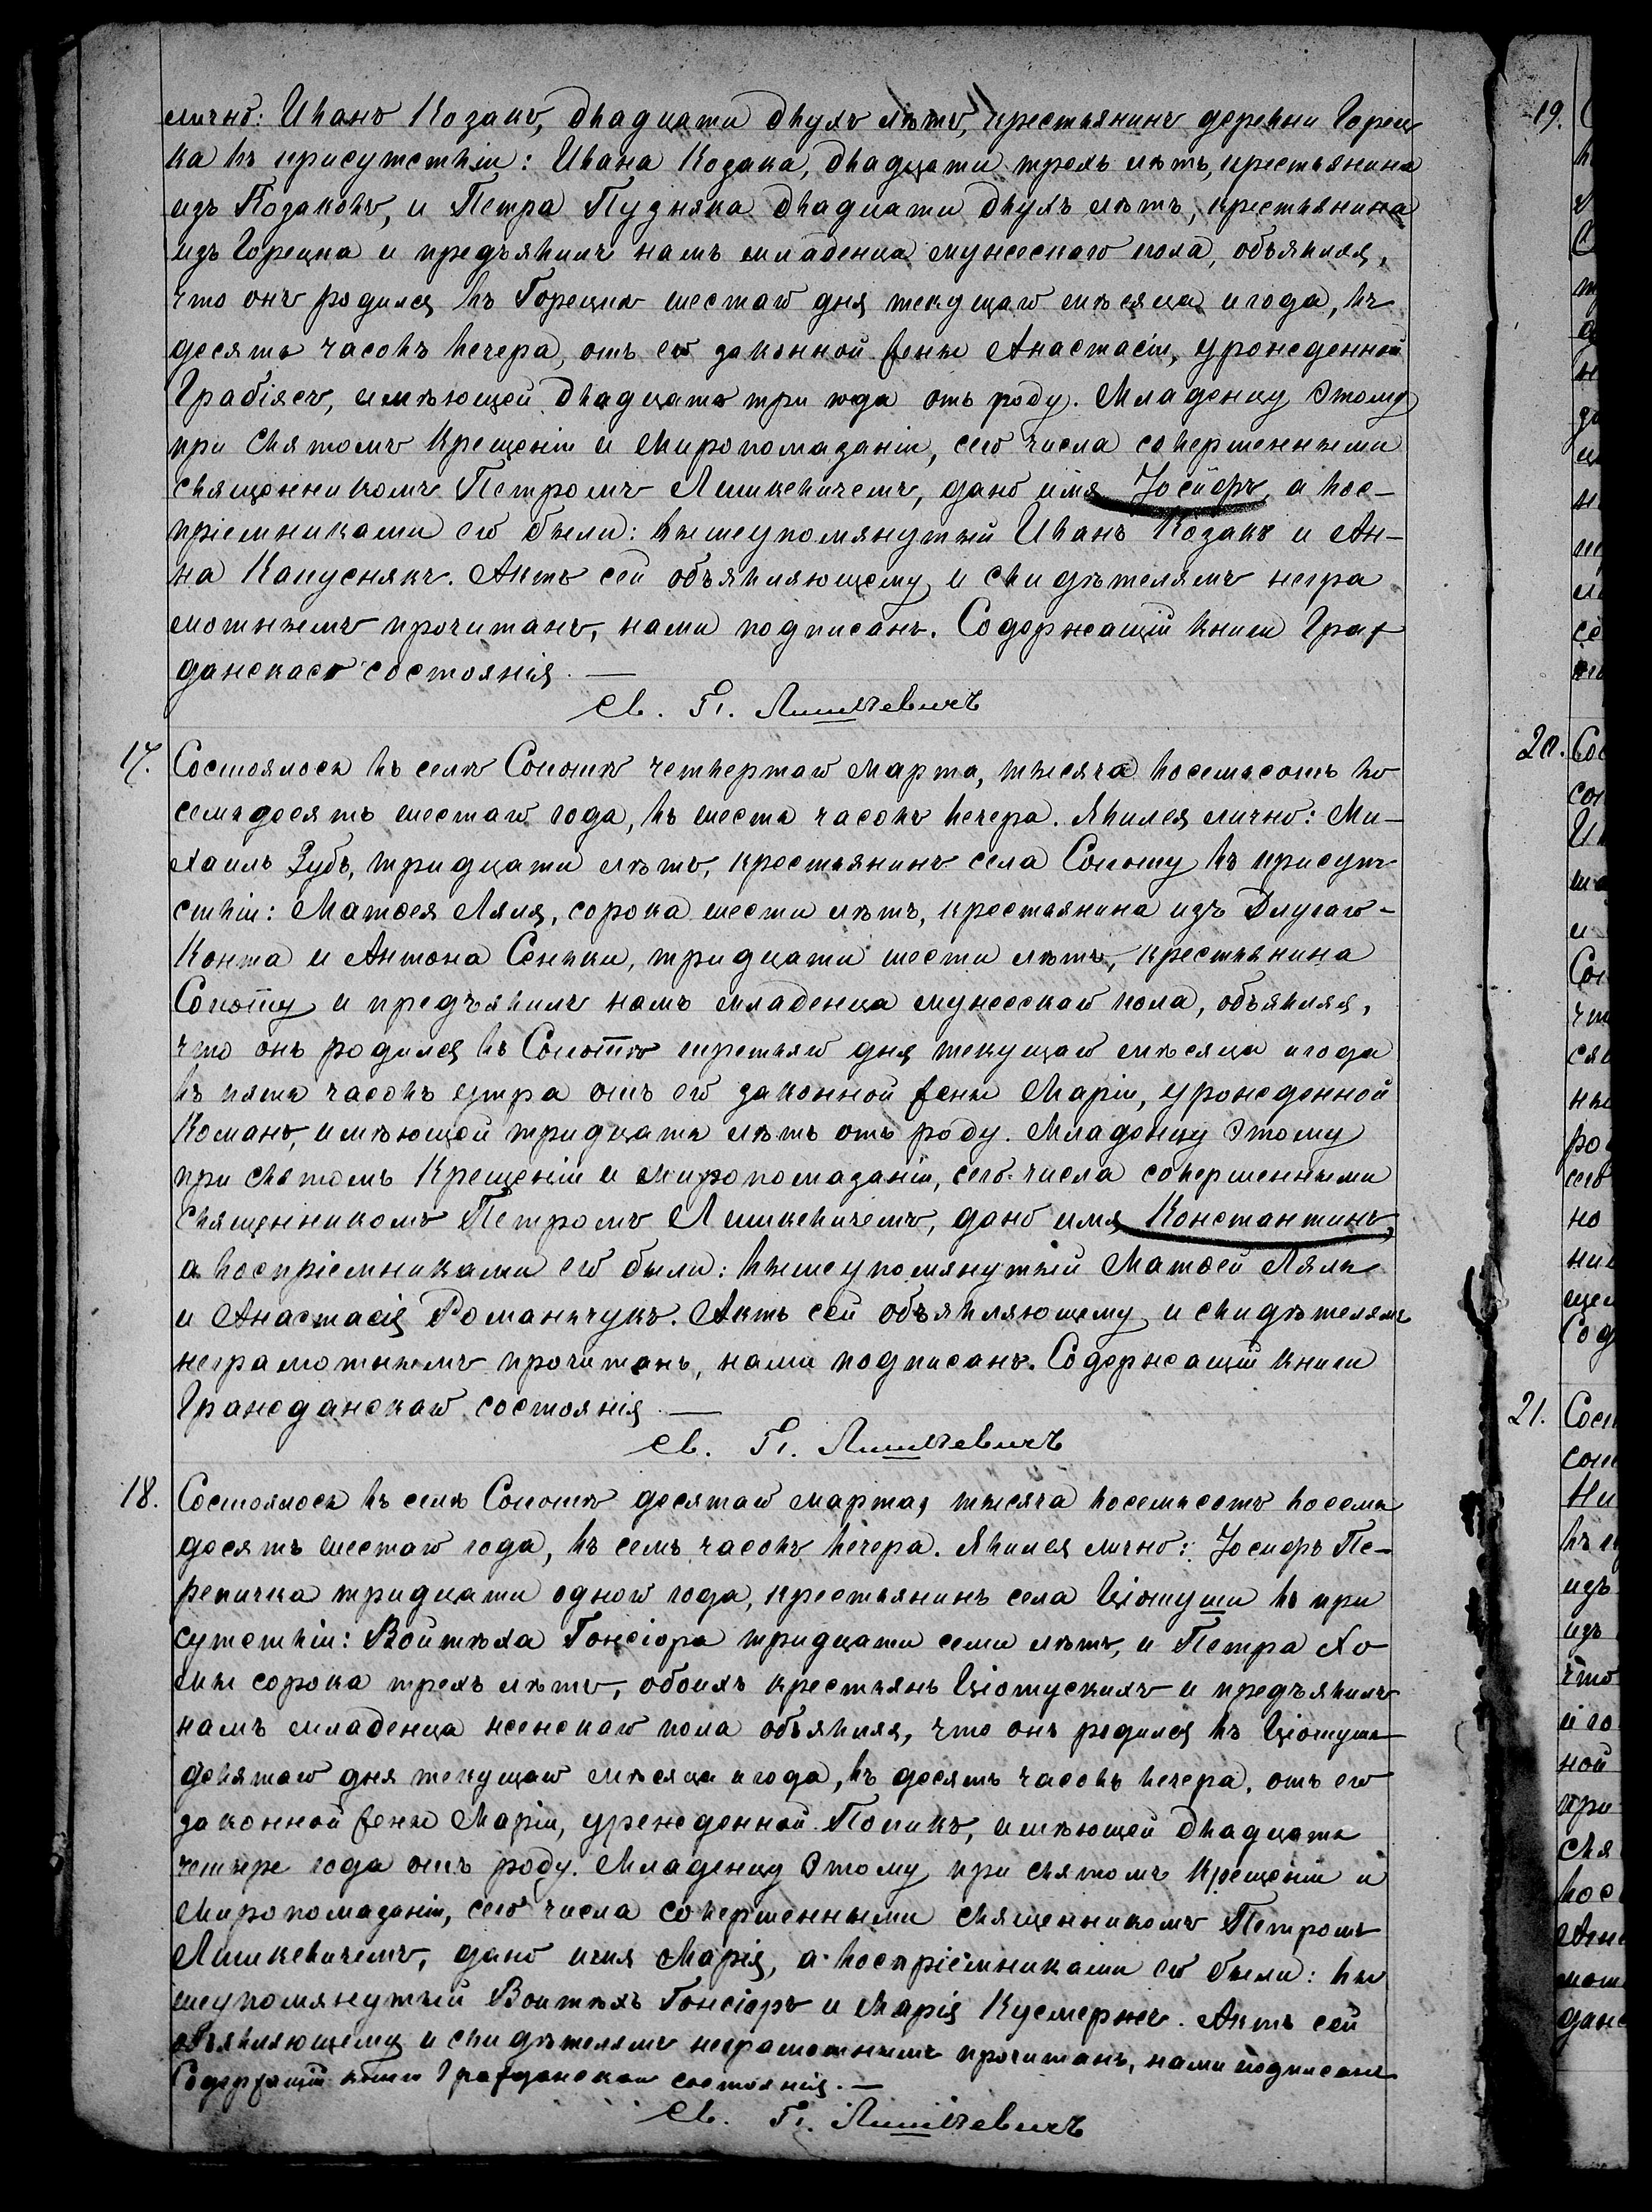 лично: Иванъ Козакъ, двадцати двухъ лѣтъ, крестьянинъ деревни Горец
ка въ присутствіи: Ивана Козака, двадцати трехъ лѣтъ, крестьянина
изъ Козаковъ, и Петра Пудняка двадцати двухъ лѣтъ, крестьянина
изъ Горецка и предъявилъ намъ младенца мужескаго пола, объявляя,
что онъ родился въ Горецкѣ шестаго дня текущаго мѣсяца и года, въ
десять часовъ вечера, отъ его законной жены Анастасіи, урожденной
Грабіясъ, имѣющей двадцать три года отъ роду. Младенцу этому
при святомъ крещеніи и миропомазаніи, сего числа совершенными
священникомъ Петромъ Лишкевичемъ, дано имя Іосифъ, а вос-
пріемниками его были: вышеупомянутый Иванъ Козакъ и Ан-
на Капуснякъ. Актъ сей объявляющему и свидѣтелямъ негра
мотнымъ прочитанъ, нами подписанъ. Содержащій книги Граж
данскаго состоянія. —
Св. П. Лишкевичъ
17. Состоялось въ селѣ Сопотѣ четвертаго марта, тысяча восемьсотъ во
семьдесятъ шестаго года, въ шесть часовъ вечера. Явился лично: Ми-
хаилъ Зубъ, тридцати лѣтъ, крестьянинъ села Сопоту въ присут
ствіи: Матѳея Ляля, сорока шести лѣтъ, крестьянина изъ Длугаго-
Конта и Антона Сеньки, тридцати шести лѣтъ, крестьянина
Сопоту и предъявилъ намъ младенца мужескаго пола, объявляя,
что онъ родился въ Сопотѣ третьяго дня текущаго мѣсяца и года
въ пять часовъ утра отъ его законной жены Маріи, урожденной
Команъ, имѣющей тридцать лѣтъ отъ роду. Младенцу этому
при святомъ крещеніи и миропомазаніи, сего числа совершенными
священникомъ Петромъ Лишкевичемъ, дано имя Константинъ,
а воспріемниками его были: вышеупомянутый Матѳей Ляль
и Анастасія Романьчукъ. Актъ сей объявляющему и свидѣтелямъ
неграмотнымъ прочитанъ, нами подписанъ. Содержащій книги
Гражданскаго состоянія. —
Св. П. Лишкевичъ
18. Состоялось въ селѣ Сопотѣ десятаго марта, тысяча восемьсотъ восемь
десятъ шестаго года, въ семь часовъ вечера. Явился лично: Іосифъ Пе-
репичка тридцати одного года, крестьянинъ села Ціотуши въ при
сутствіи: Войтѣха Гонсіора тридцати семи лѣтъ, и Петра Хо
мы сорока трехъ лѣтъ, обоихъ крестьянъ Ціотускихъ и предъявилъ
намъ младенца женскаго пола объявляя, что онъ родился въ Ціотуши
девятаго дня текущаго мѣсяца и года, въ десять часовъ вечера, отъ его
законной жены Маріи, урожденной Попикъ, имѣющей двадцать
четыре года отъ роду. Младенцу этому при святомъ крещеніи и
миропомазаніи, сего числа совершенными священникомъ Петромъ
Лишкевичемъ, дано имя Марія, а воспріемниками его были: вы
шеупомянутый Войтѣхъ Гонсіоръ и Марія Кусмержъ. Актъ сей
объявляющему и свидѣтелямъ неграмотнымъ прочитанъ, нами подписанъ
Содержащій книги Гражданскаго состоянія. —
Св. П. Лишкевичъ
19.
20.
21.